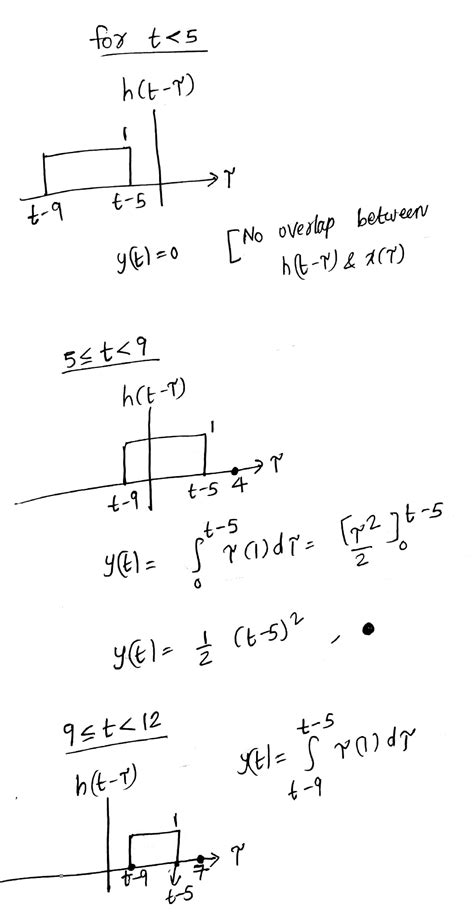 for t<5
h(t-τ)
1
τ
t-9 t-5
y(t)=0 [No overlap between
h(t-τ) & x(τ)
5≤t<9
h(t-τ)
1
τ
t-9 t-5 4
y(t) = ∫₀^{t-5} τ(1)dτ = [τ²/2]₀^{t-5}
y(t) = 1/2 (t-5)² ,
9≤t<12
y(t) = ∫_{t-9}^{t-5} τ(1)dτ
h(t-τ)
1
τ
t-9 7
t-5